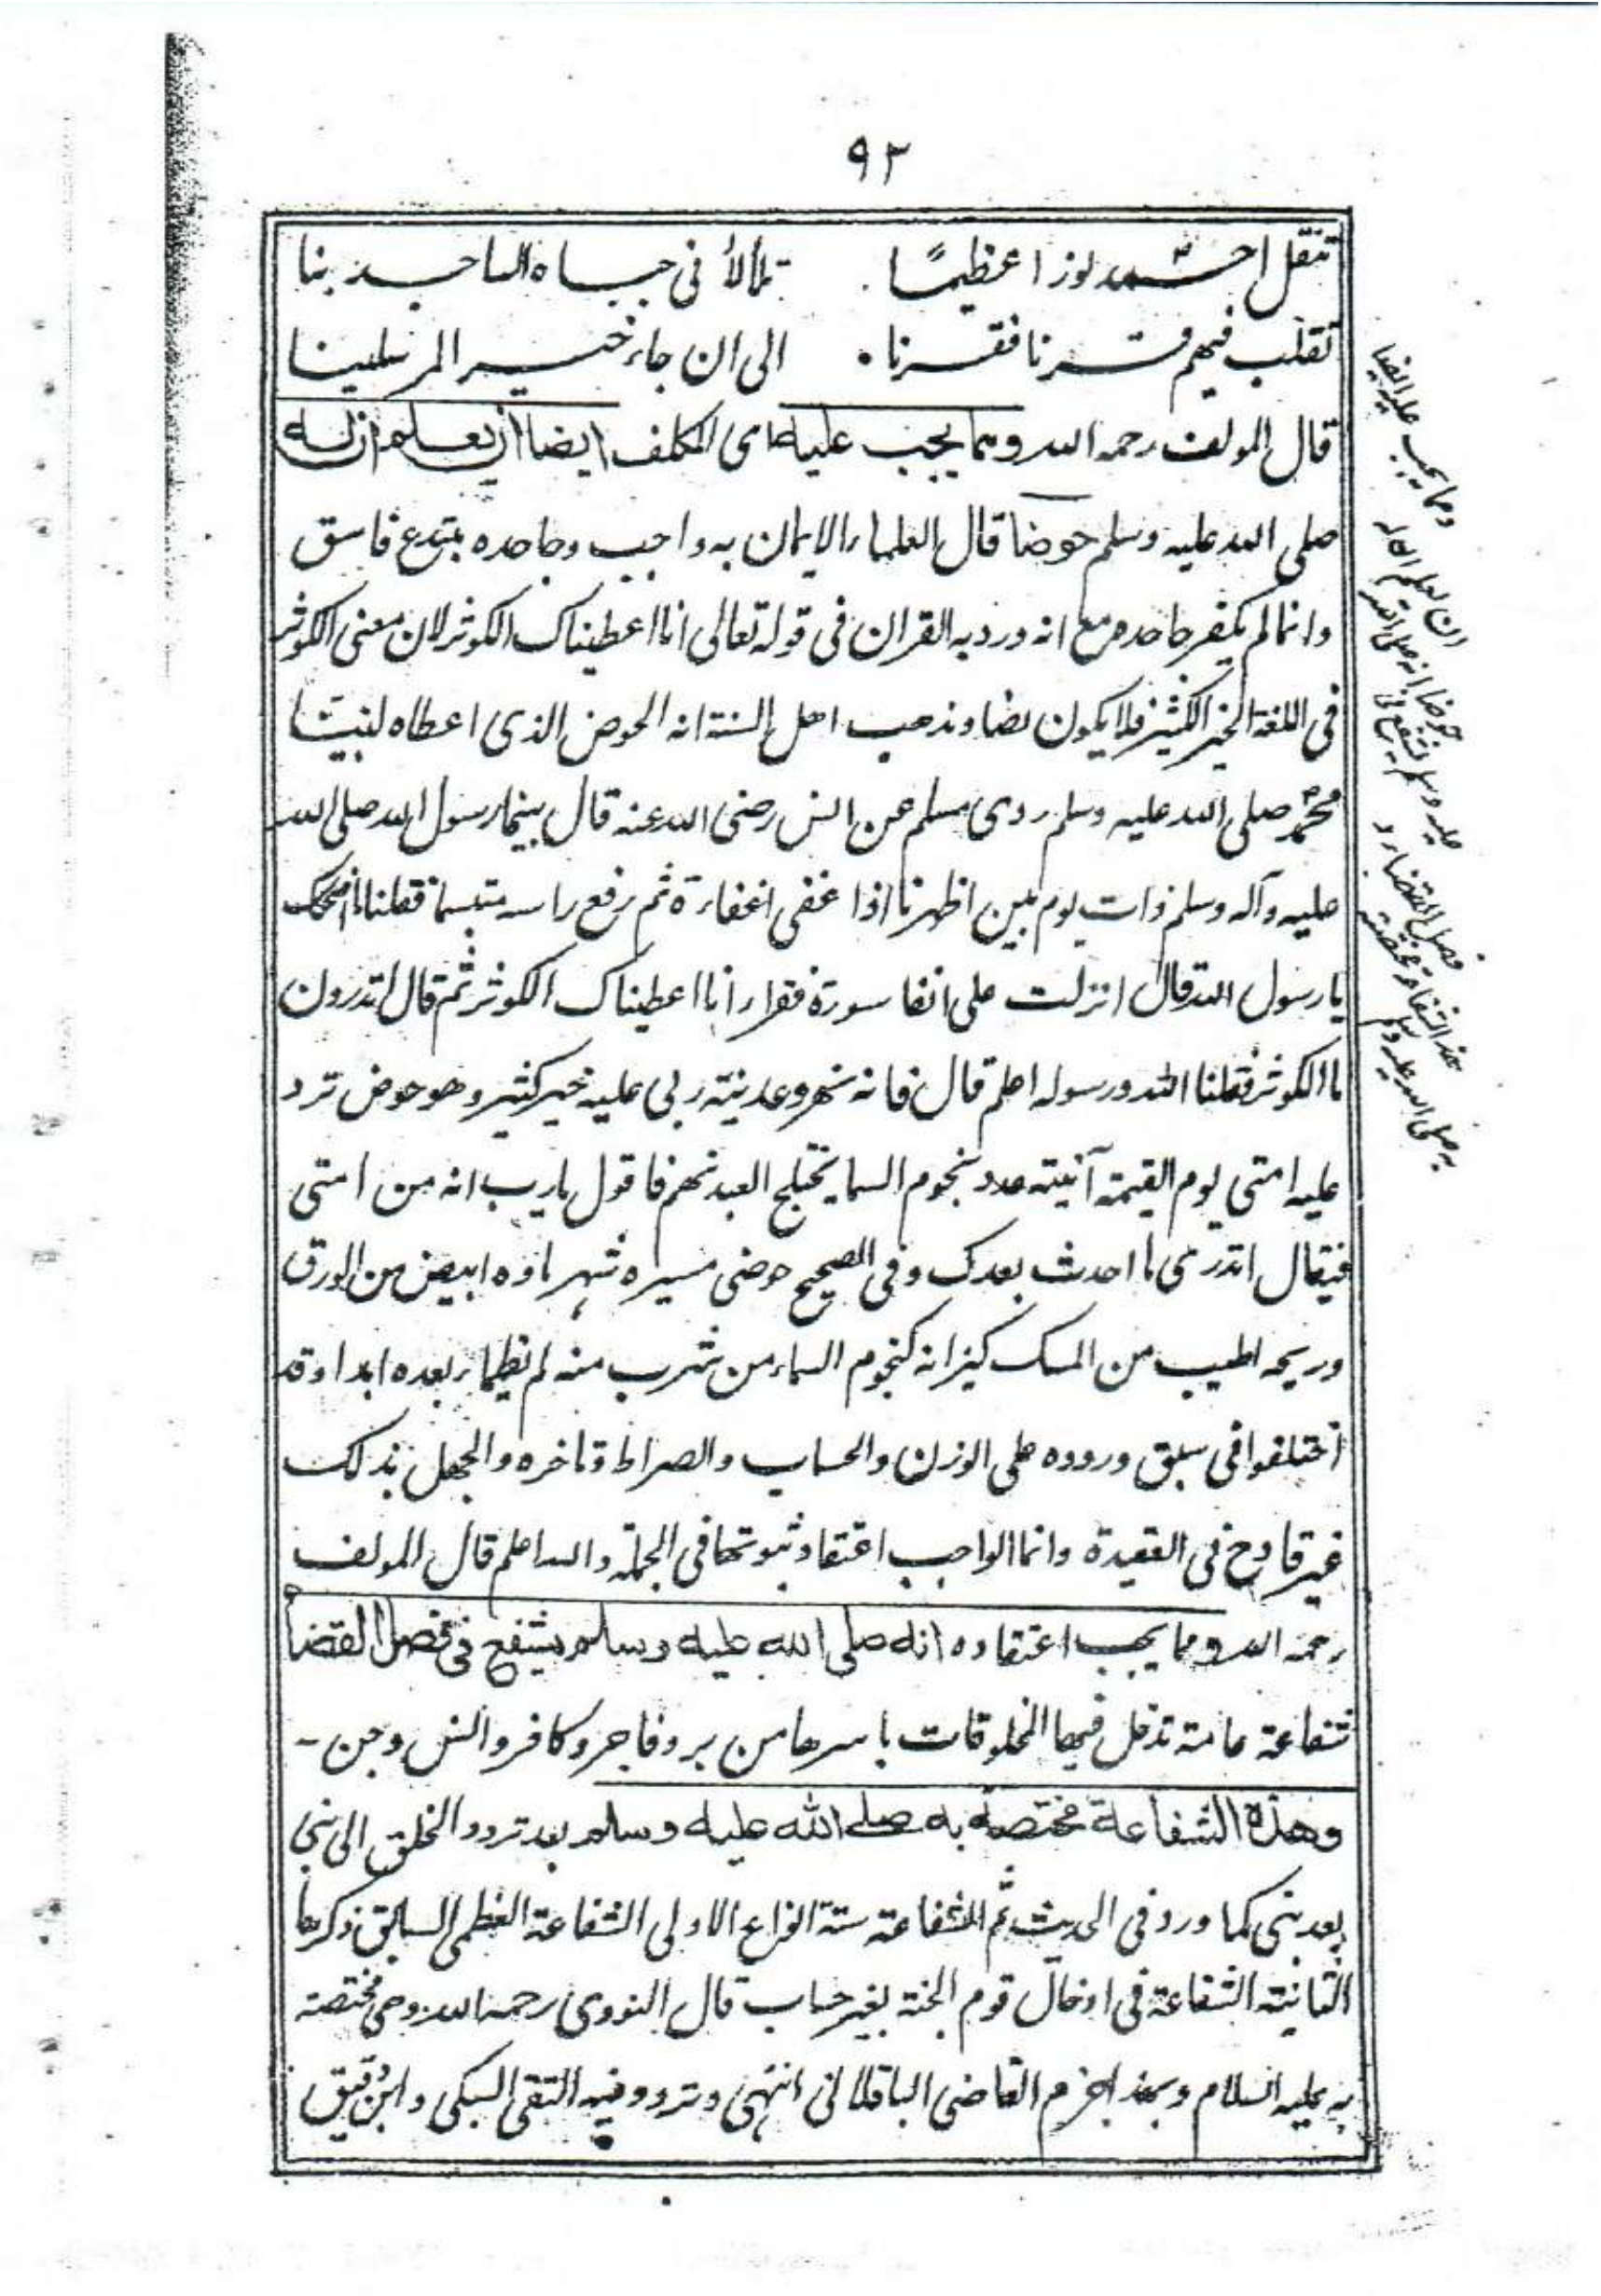 ٩٢
تنقل احمد نورا عظيمًا . تلألأ فى جباه الساجدينا
تقلب فيهم قرنا فقرنا . الى ان جاء خير المرسلينا
قال المولف رحمه الله ومما يجب عليه اى المكلف ايضا ان يعلم ان له
صلى الله عليه وسلم حوضا قال العلماء الايمان به واجب وجاحده مبتدع فاسق
وانما لم يكفر جاحده مع انه ورد به القران فى قوله تعالى انا اعطيناك الكوثر لان معنى الكوثر
فى اللغة الخير الكثير فلا يكون نصا ومذهب اهل السنة انه الحوض الذى اعطاه لنبينا
محمد صلى الله عليه وسلم روى مسلم عن انس رضى الله عنه قال بينما رسول الله صلى الله
عليه وآله وسلم ذات يوم بين اظهرنا اذا غفى اغفاءة ثم رفع راسه متبسما فقلنا ما اضحكك
يا رسول الله قال انزلت على انفا سورة فقرا انا اعطيناك الكوثر ثم قال اتدرون
ما الكوثر فقلنا الله ورسوله اعلم قال فانه نهر وعدنيه ربى عليه خير كثير وهو حوض ترد
عليه امتى يوم القيمة آنيته عدد نجوم السما يختلج العبد منهم فاقول يارب انه من امتى
فيقال اتدرى ما احدث بعدك وفى الصحيح حوضى مسيرة شهر ماوه ابيض من الورق
وريحه اطيب من المسك كيزانه كنجوم السماء من شرب منه لم يظماء بعده ابدا وقد
اختلفوا فى سبق وروده على الوزن والحساب والصراط وتاخره والجهل بذلك
غير قادح فى العقيدة وانما الواجب اعتقاد ثبوتها فى الجملة والله اعلم قال المولف
رحمه الله ومما يجب اعتقاده انه صلى الله عليه وسلم يشفع فى فصل القضا
شفاعة عامة تدخل فيها المخلوقات باسرها من بر وفاجر وكافر وانس وجن -
وهذه الشفاعة مختصة به صلى الله عليه وسلم بعد تردد الخلق الى نبى
بعد نبى كما ورد فى الحديث ثم الشفاعة ستة انواع الاولى الشفاعة العظمى السابق ذكرها
الثانية الشفاعة فى ادخال قوم الجنة بغير حساب قال النووى رحمه الله وهى مختصة
به عليه السلام وبهذا جزم القاضى الباقلانى انتهى وتردد فيه التقى السبكى وابن دقيق
ومما يجب عليه ايضا
ان يعلم ان له
حوضا وانه صلى الله
عليه وسلم يشفع فى
فصل القضاء و
هذه الشفاعة مختصة
به صلى الله عليه وسلم